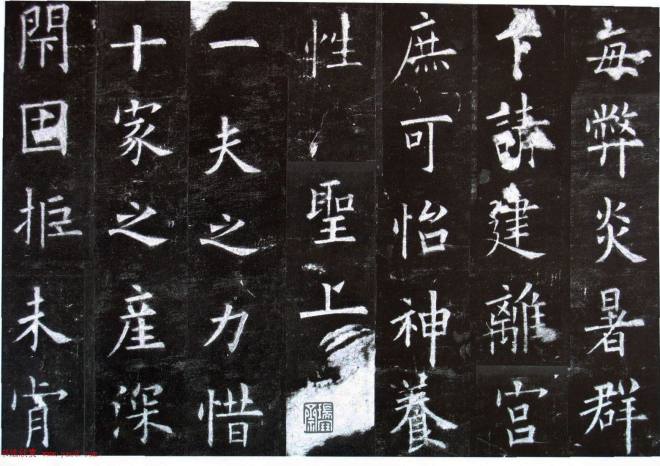 每弊炎暑群
下請建離宮
庶可怡神養
性聖上
一夫之力惜
十家之産深
閇固拒未肯